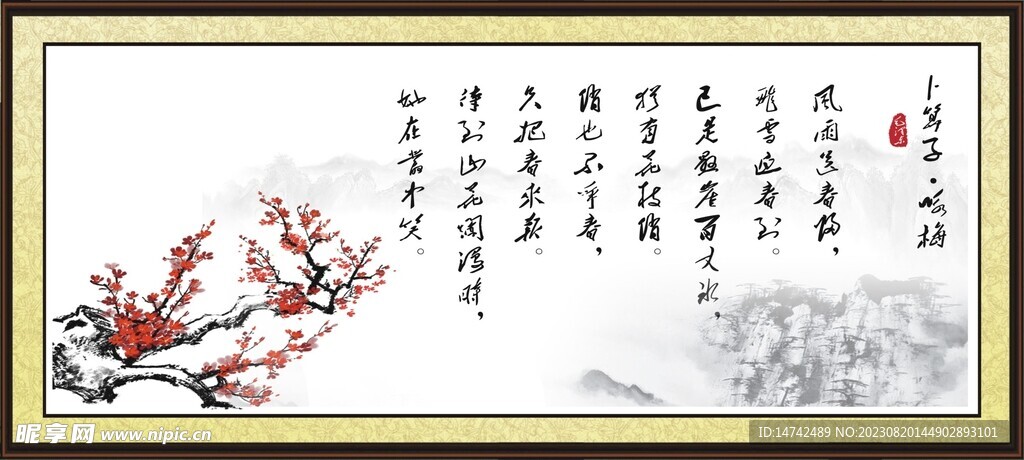 卜算子·咏梅
毛泽东
风雨送春归，
飛雪迎春到。
已是懸崖百丈冰，
猶有花枝俏。
俏也不爭春，
只把春來報。
待到山花爛漫時，
她在叢中笑。
昵享网 www.nipic.cn
ID:14742489 NO:20230820144902893101